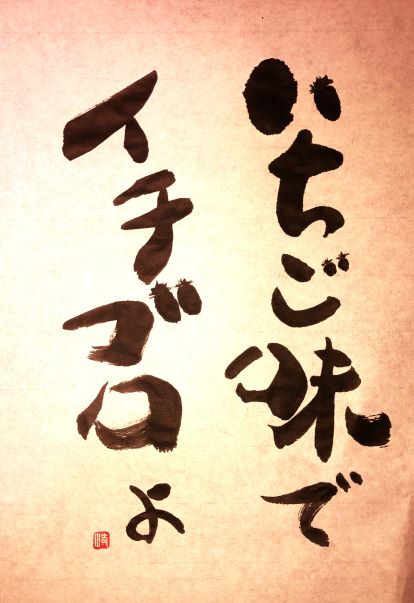 いちご味で
イチゴロよ